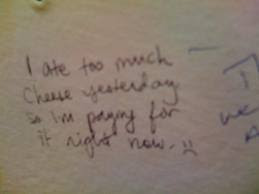 I ate too much
Cheese yesterday
so Im paying for
it right now.
we